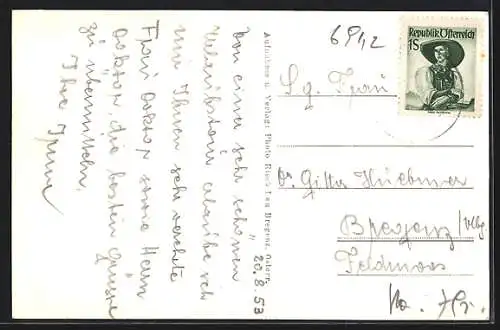 6912
Republik Österreich
1S
20.8.53
Von einer sehr schönen
erlaube ich
mir Ihnen sehr verehrte
Frau Doktor sowie Herrn
Doktor, die besten Grüsse
zu übermitteln.
Ihre Irma
Aufnahme u. Verlag: Photo Risch-Lau Bregenz
Sg. Frau
Dr. Gitta Huebmer
Bregenz/Vlbg.
Feldmoos